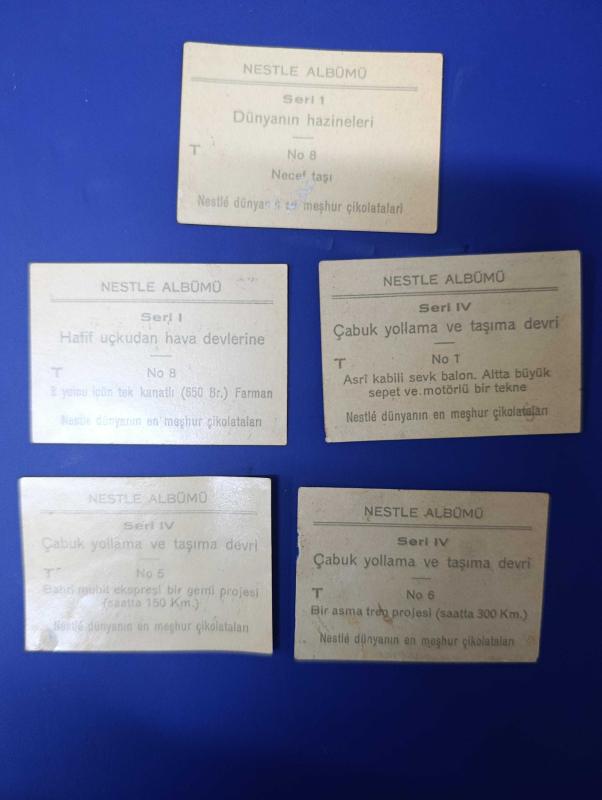 NESTLE ALBÜMÜ
Seri 1
Dünyanın hazineleri
T
No 8
Necef taşı
Nestlé dünyanın en meşhur çikolatalari
NESTLE ALBÜMÜ
Seri I
Hafif uçkudan hava devlerine
T
No 8
yolcu için tek kanatlı (650 Br.) Farman
Nestlé dünyanın en meşhur çikolataları
NESTLE ALBÜMÜ
Seri IV
Çabuk yollama ve taşıma devri
T
No 1
Asrî kabili sevk balon. Altta büyük
sepet ve motörlü bir tekne
Nestlé dünyanın en meşhur çikolataları
NESTLE ALBÜMÜ
Seri IV
Çabuk yollama ve taşıma devri
T
No 5
Bahri muhit ekspresi bir gemi projesi
(saatta 150 Km.)
Nestlé dünyanın en meşhur çikolataları
NESTLE ALBÜMÜ
Seri IV
Çabuk yollama ve taşıma devri
T
No 6
Bir asma tren projesi (saatta 300 Km.)
Nestlé dünyanın en meşhur çikolataları